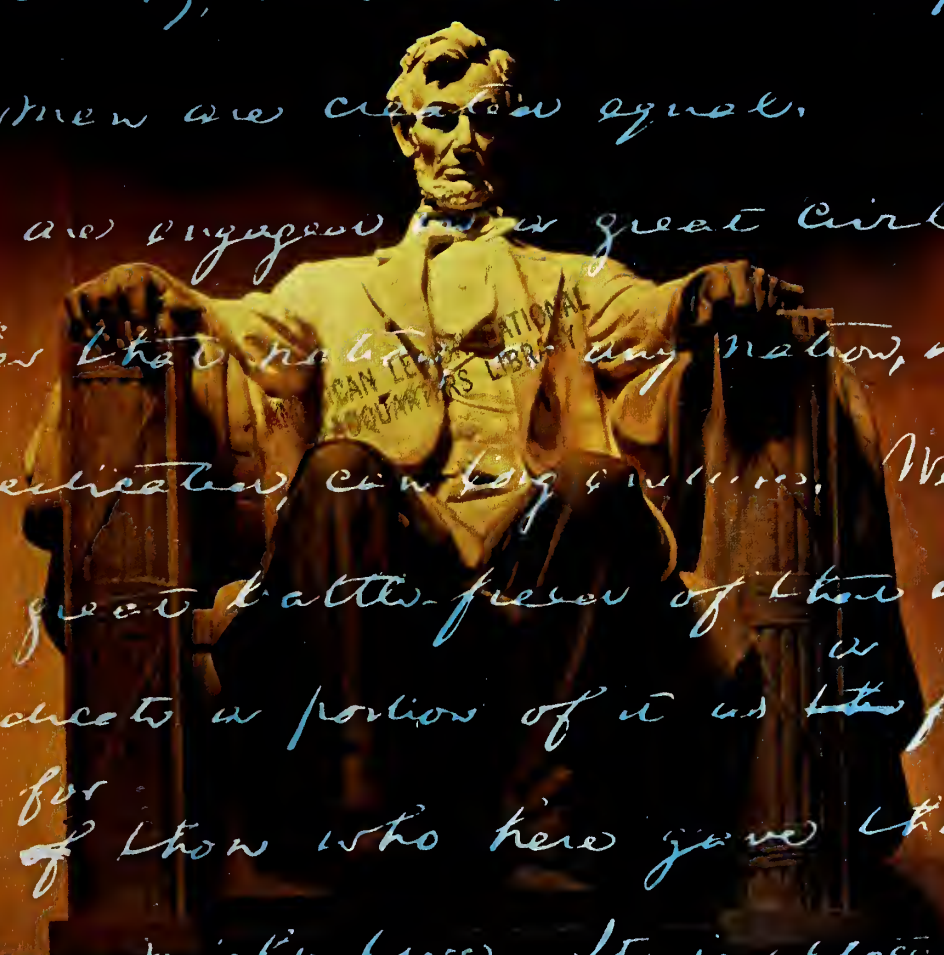 men are created equal.
are engaged in a great Civil
that nation, or any nation,
dedicated, can long endure. We
great battle-field of that
a
dedicate a portion of it as the
for
of those who here gave
AMERICAN LEGION NATIONAL
HEADQUARTERS LIBRARY